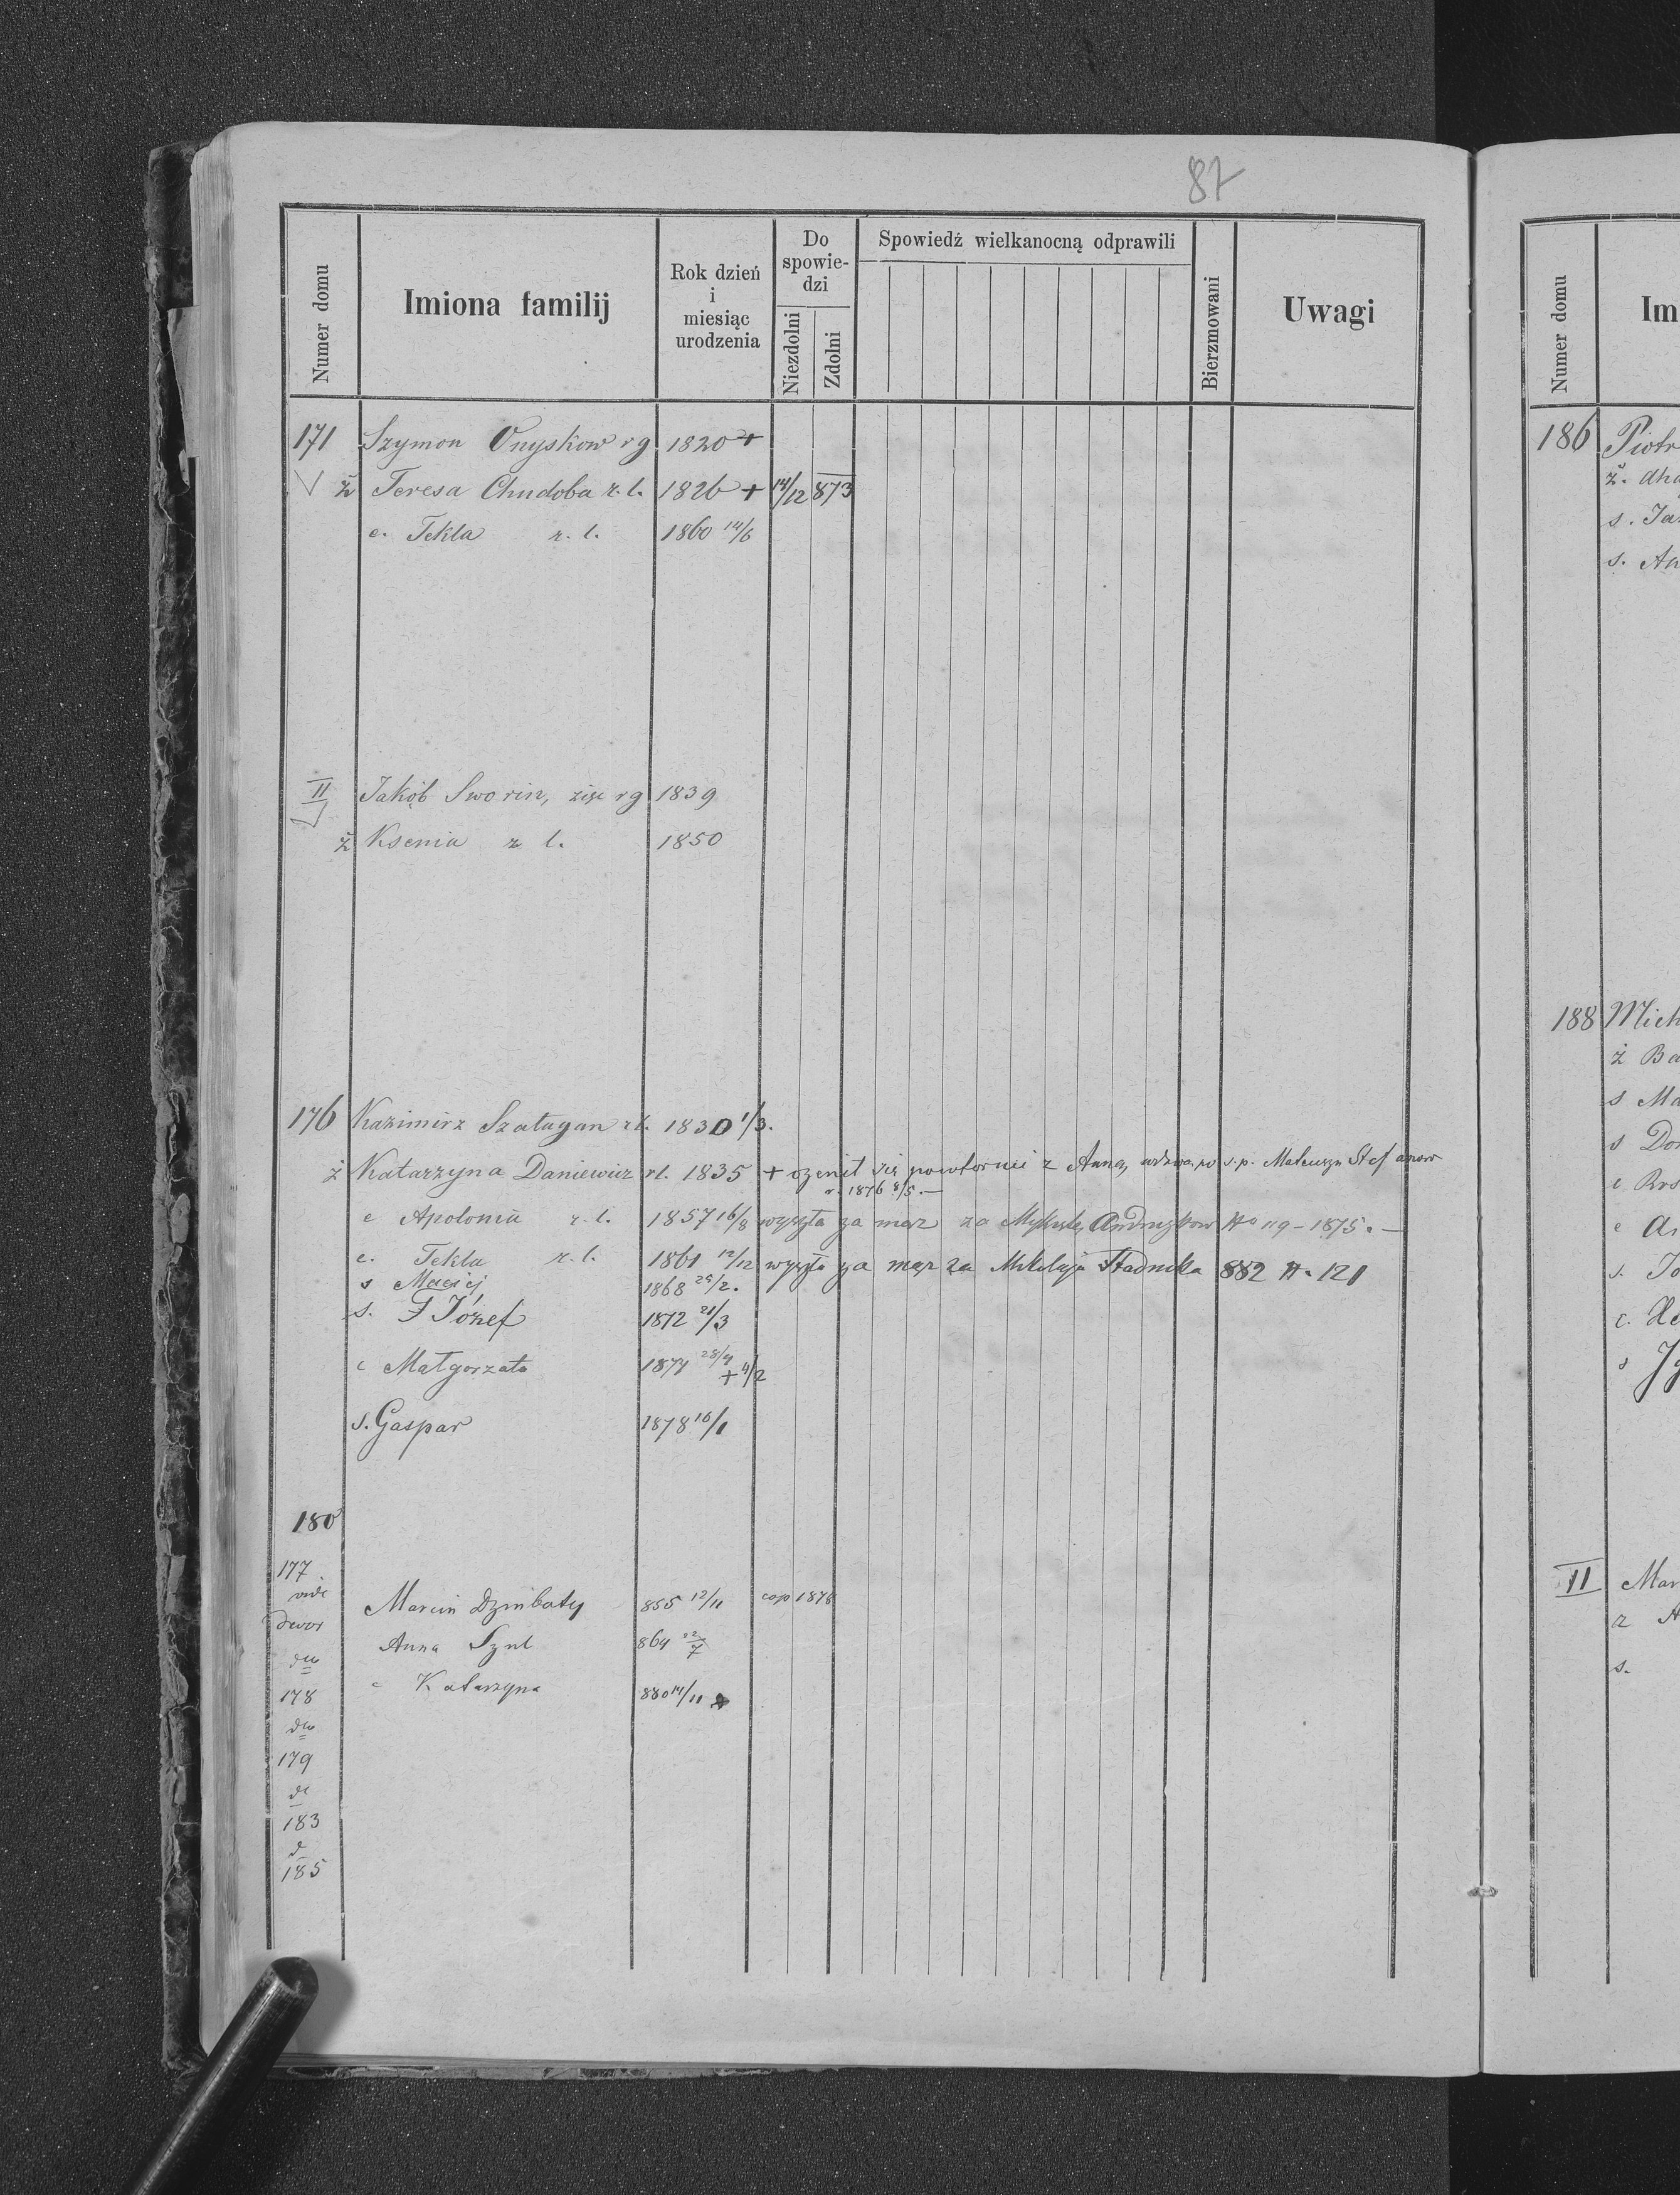 87
Numer domu
Imiona familij
Rok dzień i miesiąc urodzenia
Do spowiedzi
Niezdolni
Zdolni
Spowiedź wielkanocną odprawili
Bierzmowani
Uwagi
171 Szymon Onyskow rg 1820 +
ż Teresa Chudoba r. l. 1826 + 14/12 873
c. Tekla r. l. 1860 14/6
II Jakób Sworin, rg 1839
ż Ksenia r l. 1850
176 Kazimirz Szatagan rl. 1830 1/3.
ż Katarzyna Daniewicz rl. 1835 + ożenił się powtornie z Anną, wdową po s. p. Mateuszu Stefanow
r. 1876 8/5. —
c Apolonia r. l. 1857 16/8 wyszła za mąż za Andruszkow No 119 - 1875. —
c. Tekla r. l. 1861 12/12 wyszła za mąż za Mikołaja Stadnika 882 N. 121
s Maciej 1868 25/2.
s. Józef 1872 21/3
c Małgorzata 1874 28/4
+ 4/2
s. Gaspar 1878 16/1
180
177
vide
dwor
Marcin Dzmbaty 855 12/11 cop 1878
Anna Szul 864 22/7
dto
c Katarzyna 880 14/11
178
dto
179
dt
183
d
185
Numer domu
Im
186 Piotr
ż.
s. Ja
s. An
188 Mich
ż Ba
s Ma
s Do
c
c
s. Jo
c.
s
II Mar
s.